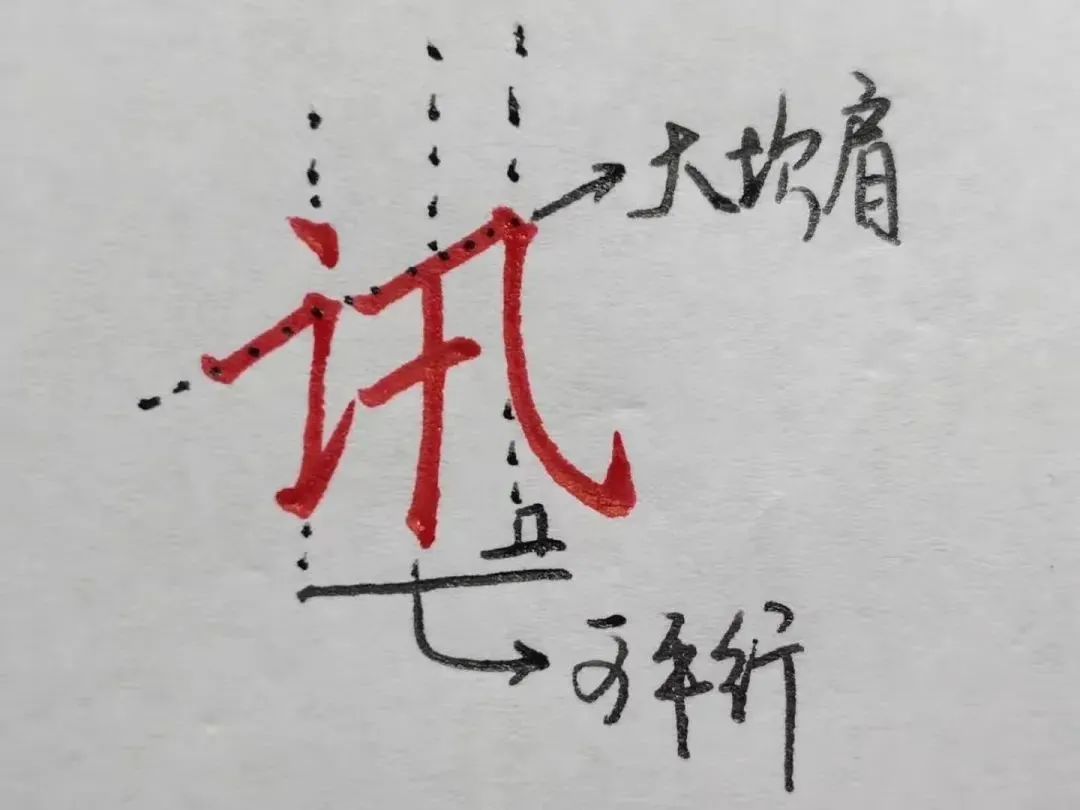 大坎肩
讯
平行